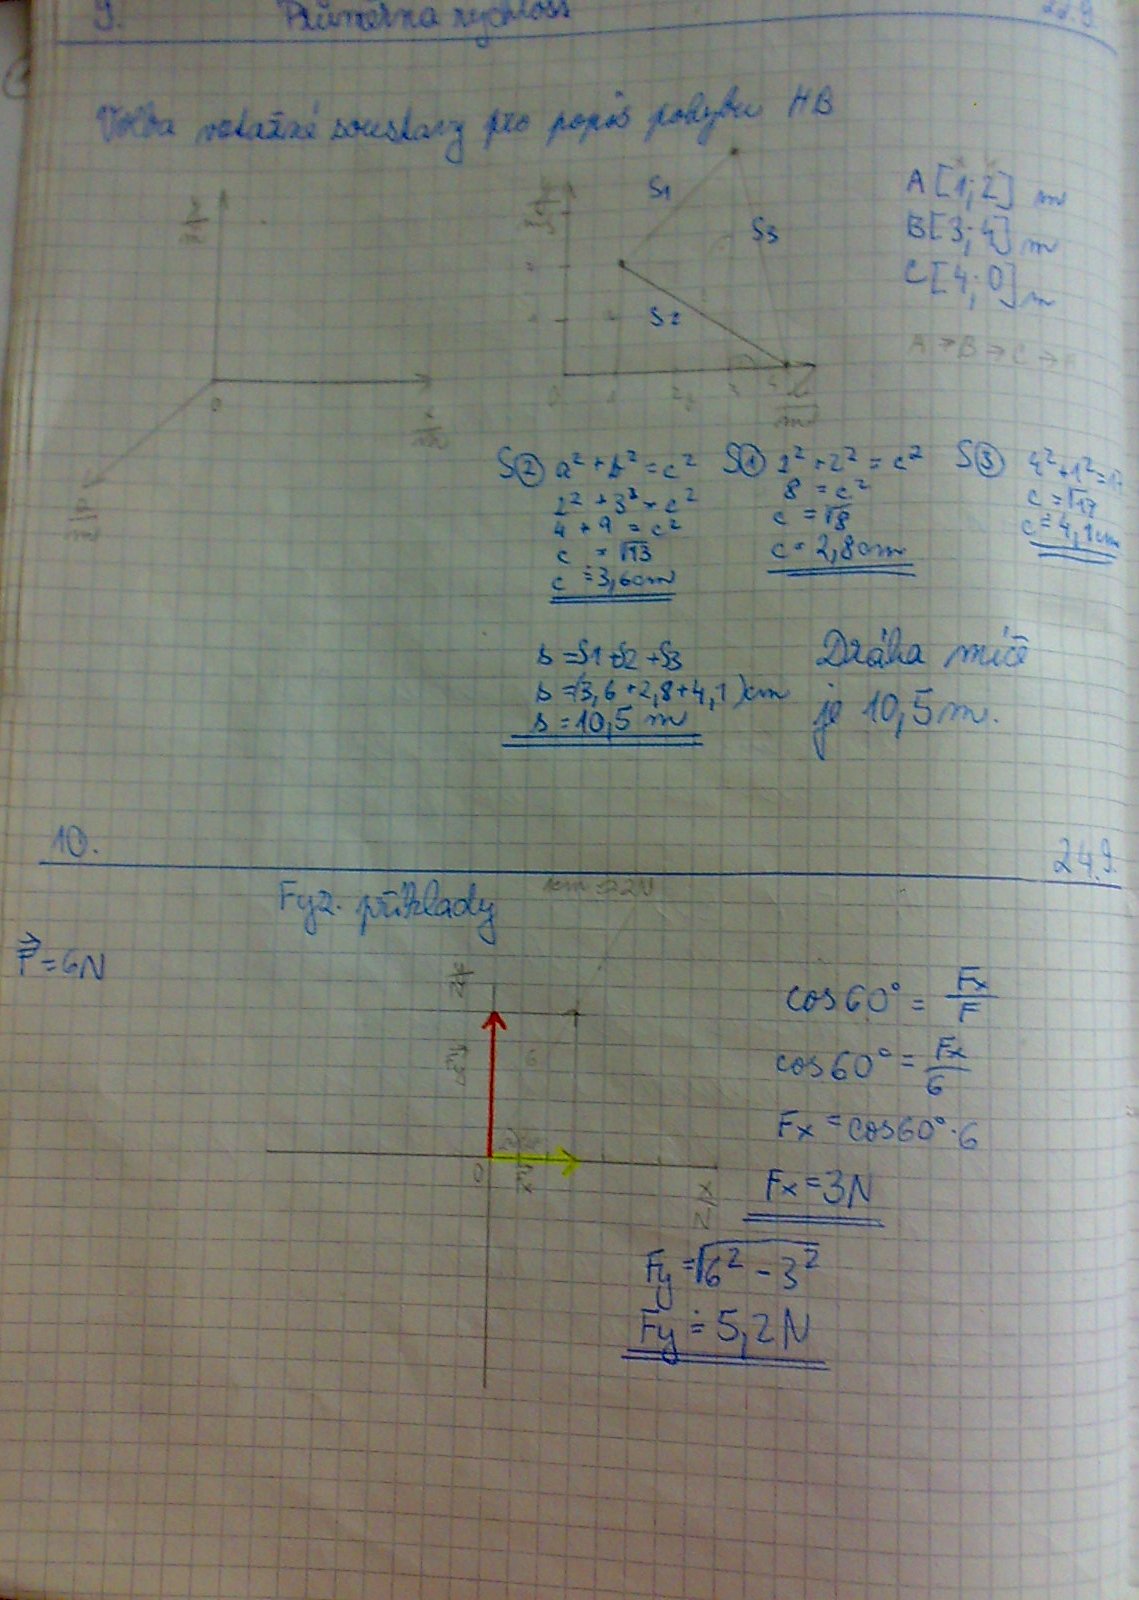 9. Průměrná rychlost 22.9.
Volba vztažné soustavy pro popis pohybu HB
S1
S3
S2
0
0
A [1; 2] m
B [3; 4] m
C [4; 0] m
A → B → C →
S② a² + b² = c²
2² + 3² = c²
4 + 9 = c²
c = √13
c ≐ 3,6cm
S① 2² + 2² = c²
8 = c²
c = √8
c = 2,8cm
S③ 4² + 1² = 17
c = √17
c = 4,1cm
s = S1 + S2 + S3
s = (3,6 + 2,8 + 4,1) cm
s = 10,5 m
Dráha míče
je 10,5m.
10. 24.9.
Fyz. příklady
1cm = 2N
F = 6N
6
0
cos 60° = Fx/F
cos 60° = Fx/6
Fx = cos60° · 6
Fx = 3N
Fy = √6² - 3²
Fy ≐ 5,2N